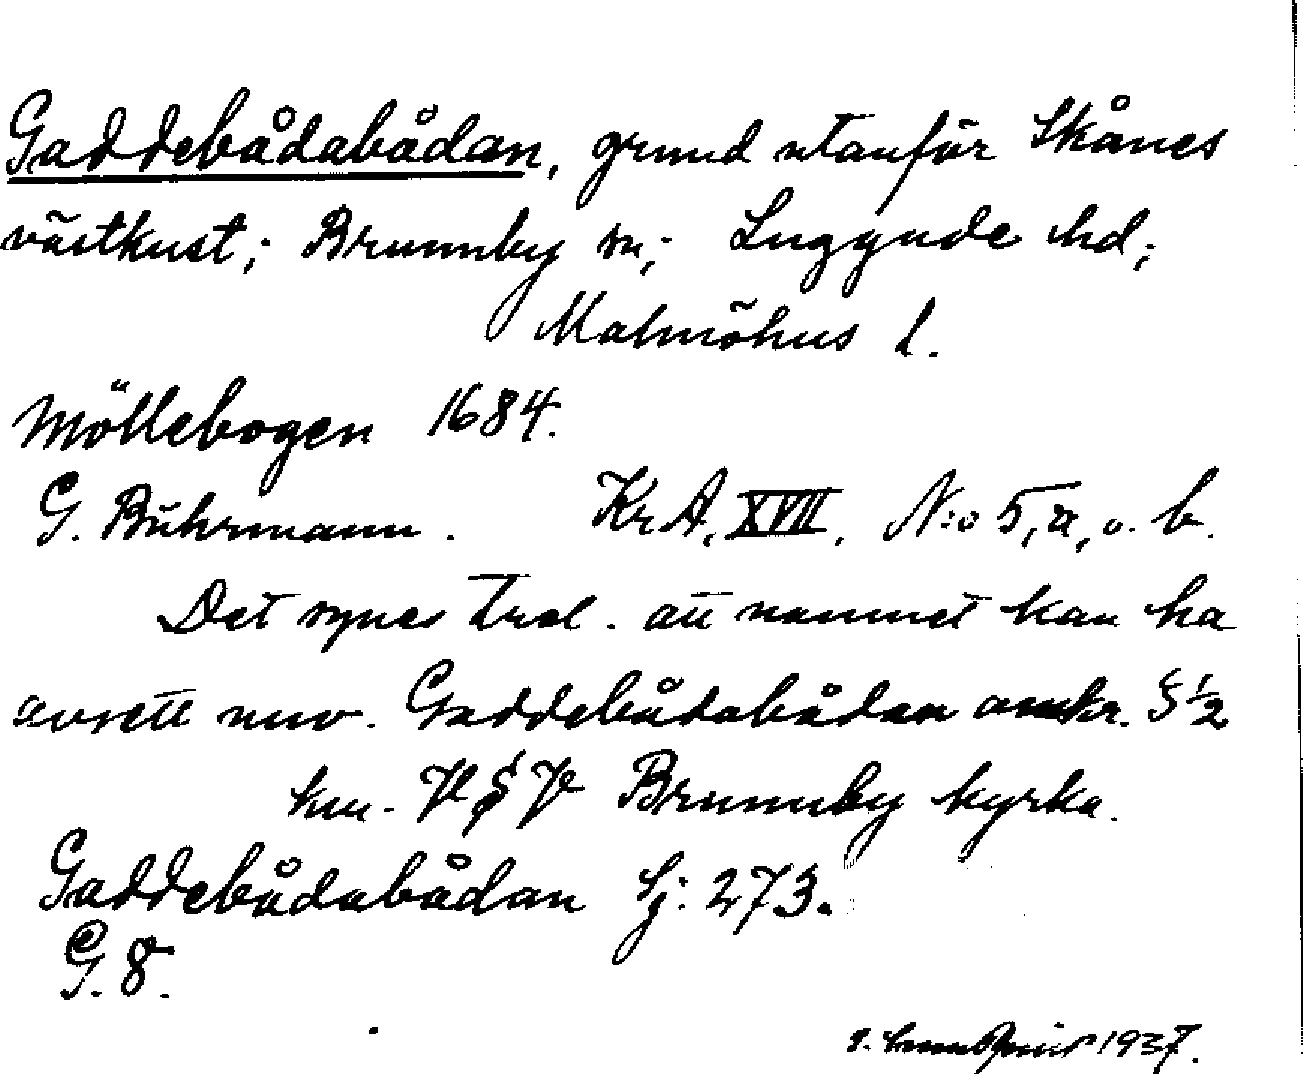 Gaddebådabådan, grund utanför Skånes
västkust; Brunnby sn; Luggude hd;
Malmöhus l.
Möllebogen 1684.
G. Buhrmann. KrA, XVII, N:o 5, a, o. b.
Det synes trol. att namnet kan ha
avsett nuv. Gaddebådabådan omkr. 5 1/2
km. V S V Brunnby kyrka.
Gaddebådabådan Sj: 273.
G. 8.
1937.